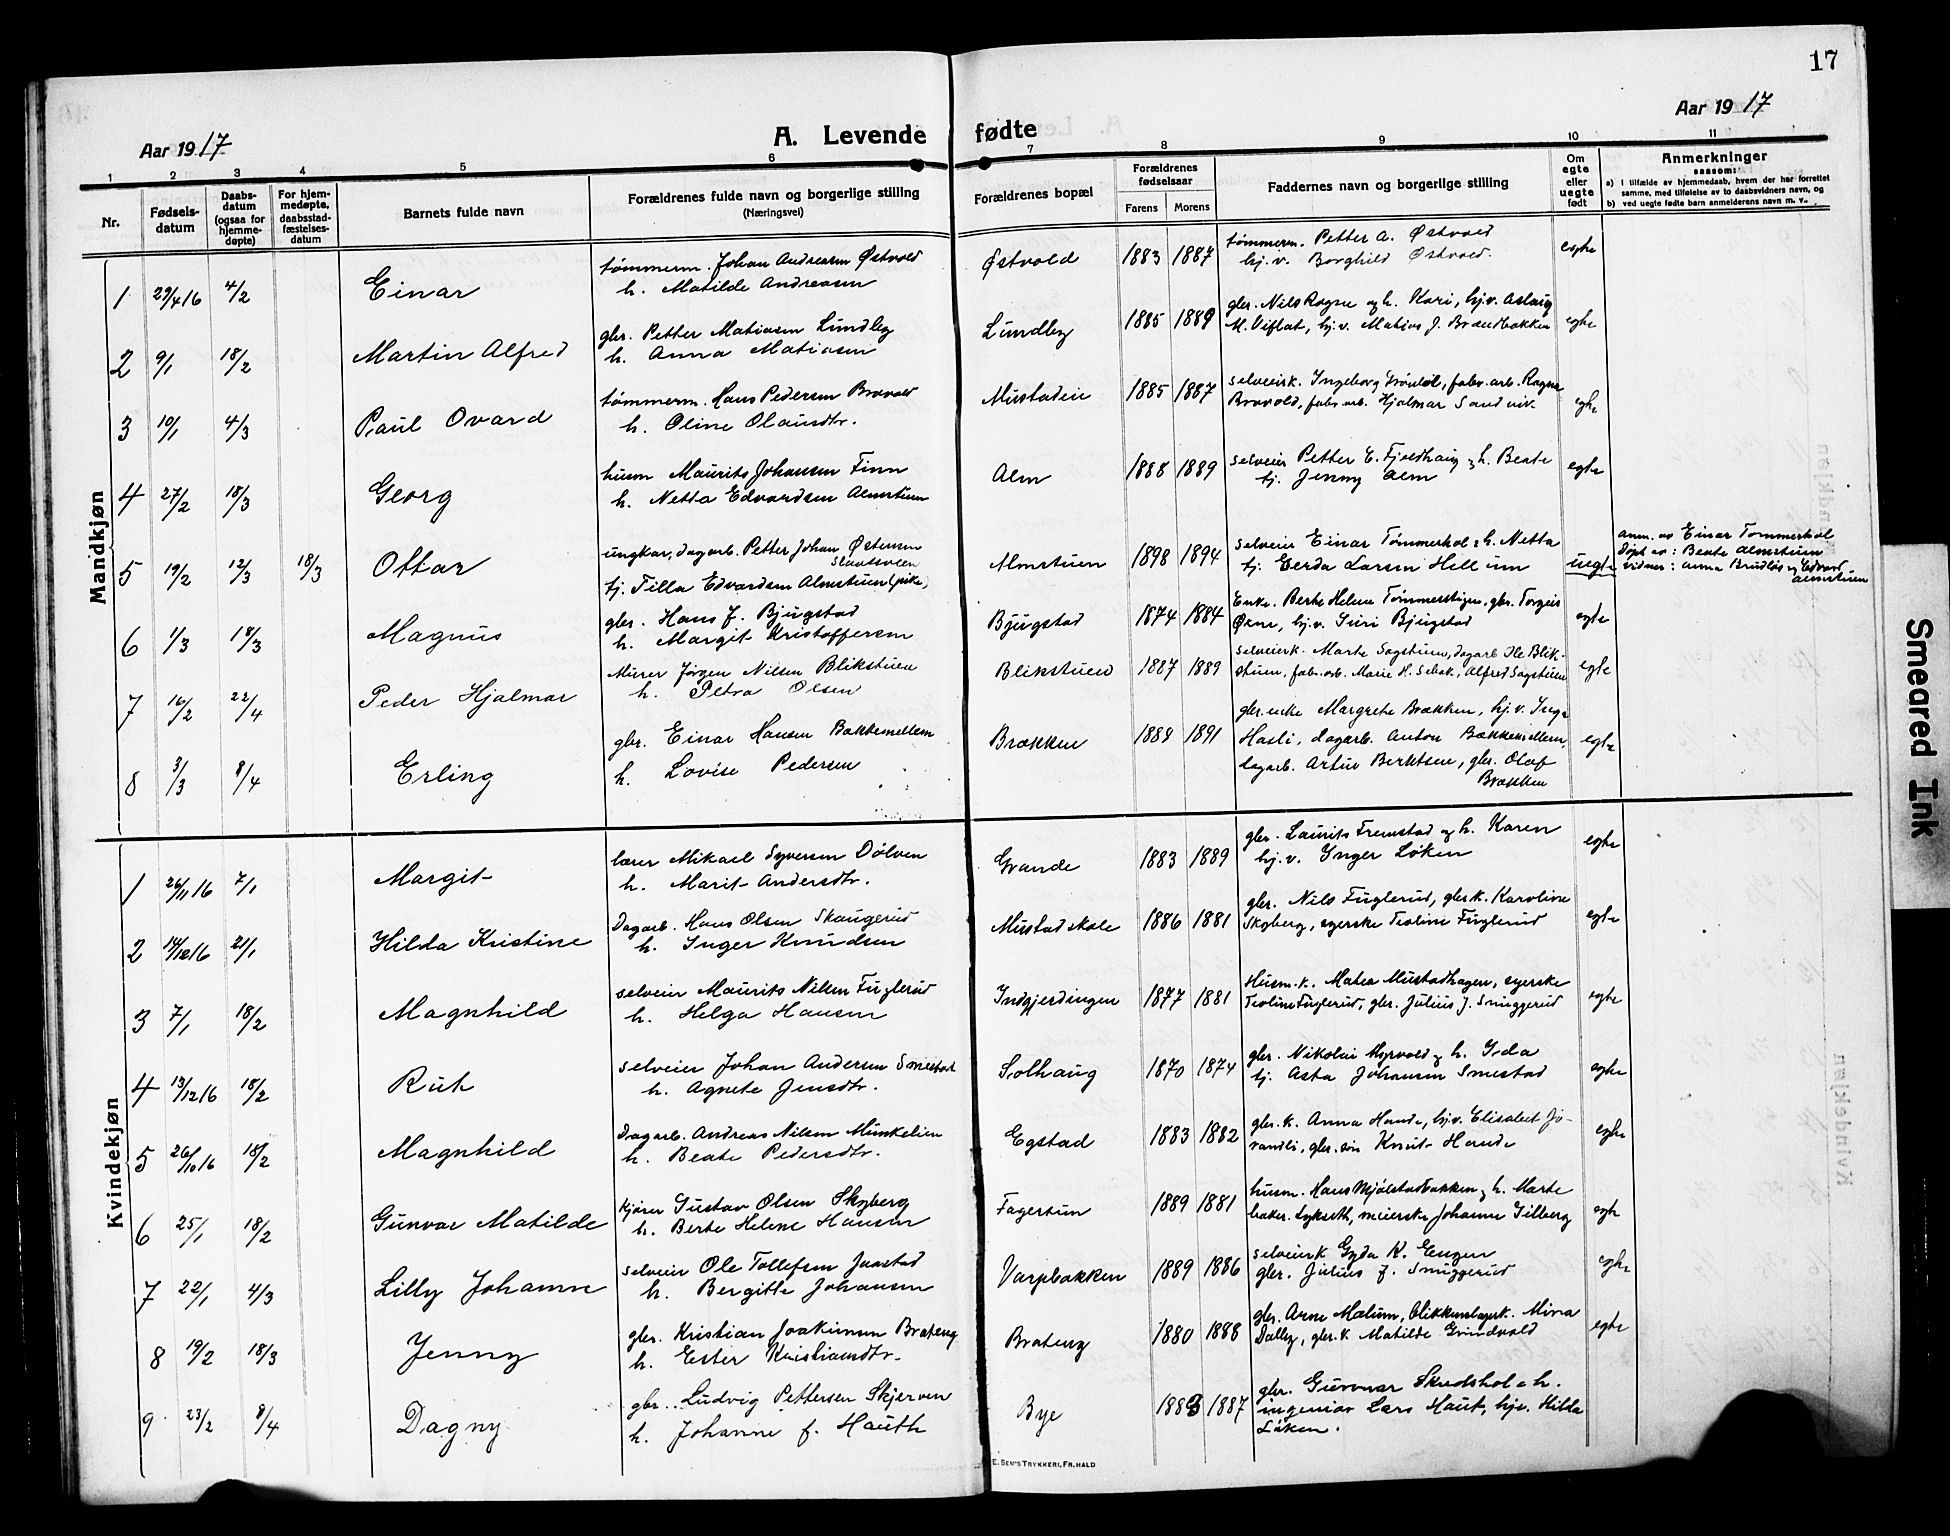 17
Aar 1917
A. Levende fødte
Aar 1917
1 2 3 4 5 6 7 8 9 10 11
Nr.
Fødsels-
datum
Daabs-
datum
(ogsaa for
hjemme-
døpte)
For hjem-
medøpte,
daabsstad-
fæstelses-
datum
Barnets fulde navn
Forældrenes fulde navn og borgerlige stilling
(Næringsvei)
Forældrenes bopæl
Forældrenes
fødselsaar
Farens Morens
Faddernes navn og borgerlige stilling
Om
egte
eller
uegte
født
Anmerkninger
saasom:
a) i tilfælde av hjemmedaab, hvem der har forrettet
samme, med tilføielse av to daabsvidners navn, og
b) ved uegte fødte barn anmelderens navn m. v.
Mandkjøn
tømmerm. Johan Andreasen Østvold
1 29/4 16 4/2 Einar h. Matilde Andreasen Østvold 1883 1887
tømmerm. Petter A. Østvold
hj.v. Borghild Østvold. egte
gbr. Petter Matiasen Lundby
2 9/1 18/2 Martin Alfred h. Anna Matiasen Lundby 1885 1889
gbr. Nils Rogne og h. Kari, hj.v. Aslaug
M. Viflat, hj.v. Matias J. Brændbakken egte
tømmerm. Hans Pedersen Bravold
3 10/1 4/3 Paul Ovard h. Oline Olausdtr. Mustadlien 1885 1887
selveierk. Ingeborg Grønlöl, fabr.arb. Ragna
Bravold, fabr.arb. Hjalmar Sandvik. egte
husm Maurits Johansen Finn
4 27/2 18/3 Georg h. Netta Edvardsen Almstuen Alm 1888 1889
selveier Petter E. Fjeldhaug og h. Beate
tj. Jenny Alm egte
ungkar, dagarb. Petter Johan Østensen
Slaatsveen
5 19/2 12/3 18/3 Ottar tj. Tilla Edvardsen Almstuen (pike) Almstuen 1898 1894
selveier Einar Tømmerhol & h. Netta
tj. Gerda Larsen Hellum uegte
anm. av Einar Tømmerhol
døpt av: Beate Almstuen
vidner: Anna Brudlös og Edvard
Almstuen
gbr. Hans J. Bjugstad
6 1/3 18/3 Magnus h. Margit Kristoffersen Bjugstad 1874 1884
Enke. Berte Helene Tømmerstigen, gbr. Torgeir
Øxne, hj.v. Siri Bjugstad egte
Murer Jørgen Nilsen Blikstuen
7 16/2 22/4 Peder Hjalmar h. Petra Olsen Blikstuen 1887 1889
selveierk. Marte Sagstuen, dagarb Ole Blik-
stuen, fabr.arb. Marie H. Sebak, Alfred Sagstuen egte
gbr. Einar Hansen Bakkemellem
8 3/3 8/4 Erling h. Lovise Pedersen Brækken 1888 1891
gbr.enke Margrete Brækken, hj.v. Inga
Hasli, dagarb. Anton Bækkemellem,
dagarb. Artur Berntsen, gbr. Olaf
Brækken egte
Kvindekjøn
lærer Mikael Syversen Dølven
1 26/11 16 7/1 Margit h. Marit Andersdtr. Grande 1883 1889
gbr. Laurits Fremstad og h. Karen
hj.v. Inger Løken egte
Dagarb. Hans Olsen Skaugerud
2 14/12 16 21/1 Hilda Kristine h. Inger Knudsen Mustad skole 1886 1881
gbr. Nils Fuglerud, gbr.k. Karoline
Skyberg, syerske Teoline Fuglerud egte
selveier Maurits Nilsen Fuglerud
3 7/1 18/2 Magnhild h. Helga Hansen Indgjerdingen 1877 1881
Husm.k. Matea Mustadhagen, syerske
Teoline Fuglerud, gbr. Julius J. Smuggerud egte
selveier Johan Andersen Smestad
4 13/12 16 18/2 Rut h. Agnete Jensdtr. Solhaug 1870 1874
gbr. Nikolai Myrvold og h. Inda
tj. Asta Johansen Smestad egte
Dagarb. Andreas Nilsen Munkelien
5 26/10 16 18/2 Magnhild h. Beate Pedersdtr. Egstad 1883 1882
gbr.k. Anna Hande, hj.v. Elisabet Jo-
randli, gbr. søn Knut Hande egte
kjører Gustav Olsen Skyberg
6 25/1 18/2 Gunvor Matilde h. Berte Helene Hansen Fagertun 1889 1881
husm. Hans Mjølstadbakken og h. Marte
baker. Lykseth, meierske Johanne Gilberg egte
selveier Ole Tollefsen Jaastad
7 22/1 4/3 Lilly Johanne h. Bergitte Johansen Varpbakken 1889 1886
selveierk Gyda K. Engen
gbr. Julius J. Smuggerud egte
gbr. Kristian Joakimsen Brateng
8 19/2 18/3 Jenny h. Ester Kristiansdtr. Brateng 1880 1888
gbr. Arne Mælum, blikkenslagerk. Mina
Dalby, gbr.k. Matilde Grindvold egte
gbr. Ludvig Pettersen Skjerven
9 23/2 8/4 Dagny h. Johanne f. Hauth Bye 1883 1887
gbr. Gunnar Skredshol & h.
ingeniør Lars Haut, hj.v. Hilda
Løken.
E. SEM'S TRYKKERI, FR.HALD
Smeared Ink